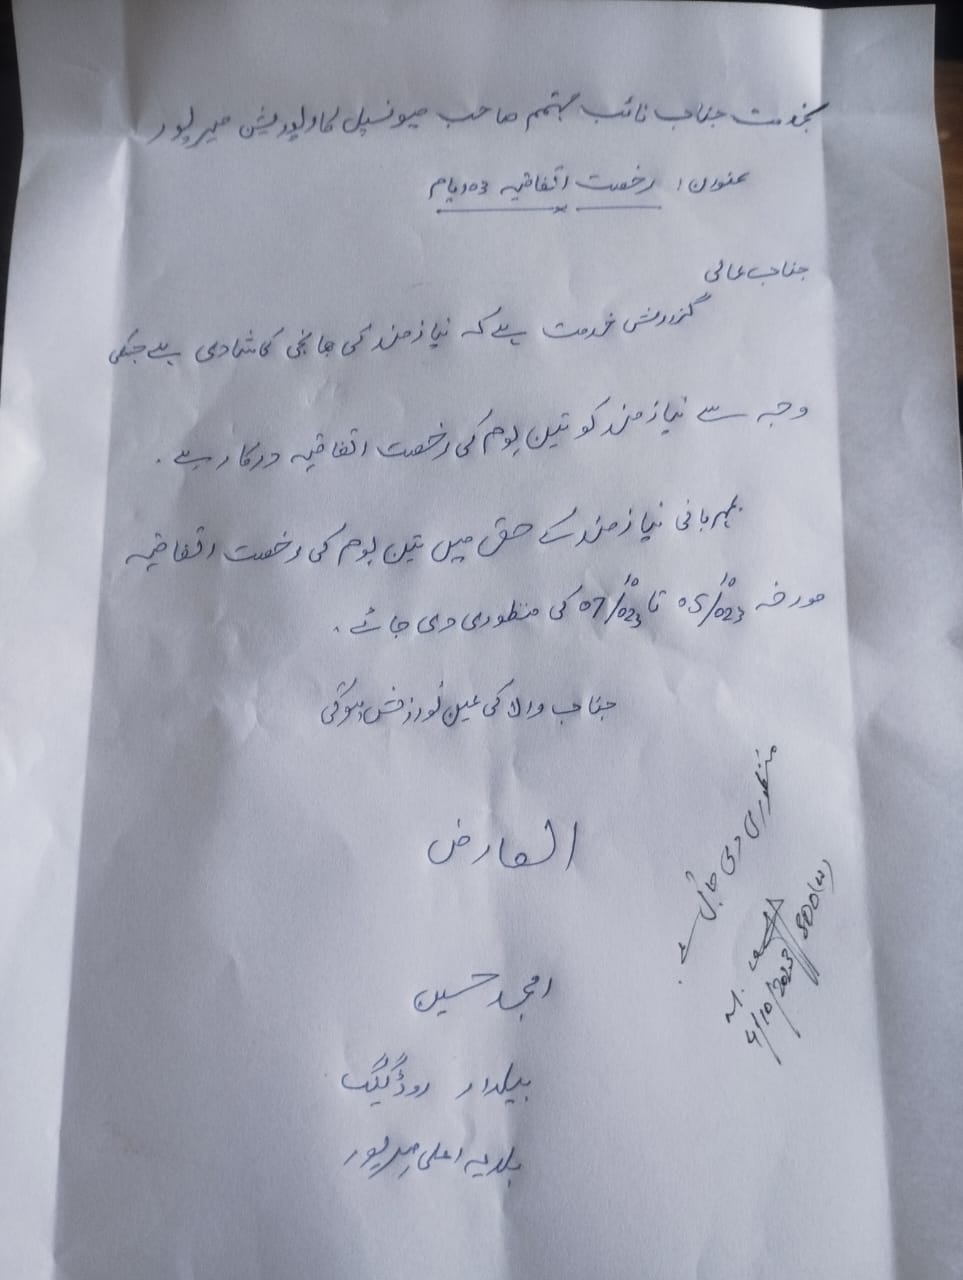 بخدمت جناب نائب مہتمم صاحب میونسپل کارپوریشن میرپور
عنوان: رخصت اتفاقیہ 03 ایام
جناب عالی
گزارش خدمت ہے کہ نیازمند کی بھانجی کی شادی ہے جسکی
وجہ سے نیازمند کو تین یوم کی رخصت اتفاقیہ درکار ہے۔
بمہربانی نیازمند کے حق میں تین یوم کی رخصت اتفاقیہ
مورخہ 05/10/023 تا 07/10/023 کی منظوری دی جائے۔
جناب والا کی عین نوازش ہوگی
العارض
امجد حسین
بیلدار روڈ گینگ
بلدیہ اعلیٰ میرپور
منظوری دی جاتی ہے۔
4/10/2023